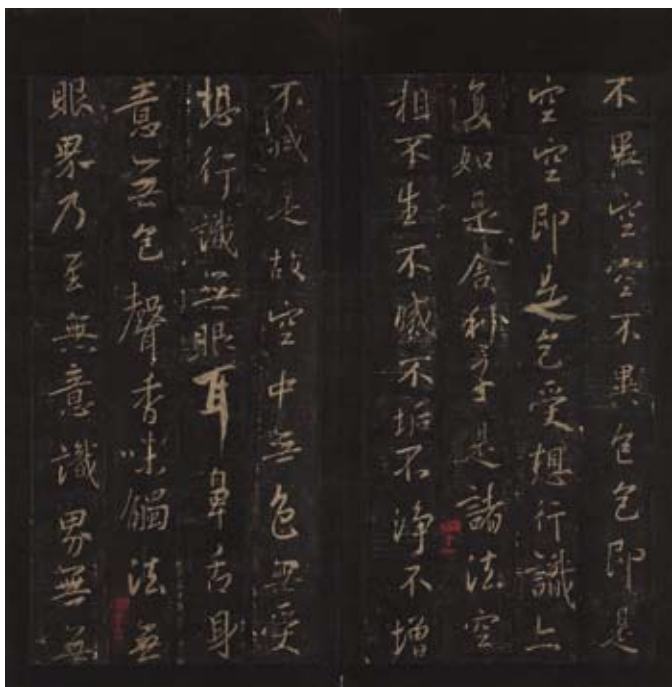 不異空空不異色色即是
空空即是色受想行識亦
復如是舍利子是諸法空
相不生不滅不垢不淨不增
不減是故空中無色無受
想行識無眼耳鼻舌身
意無色聲香味觸法無
眼界乃至無意識界無無